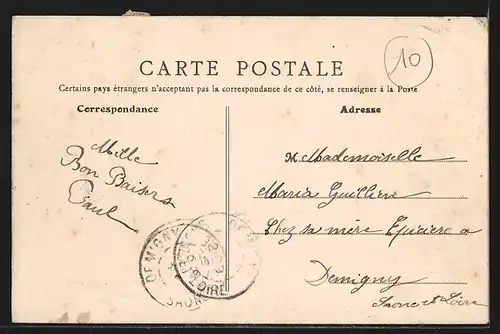 10
CARTE POSTALE
Certains pays étrangers n'acceptent pas la correspondance de ce côté, se renseigner à la Poste
Correspondance
Adresse
Mille
Bon Baisers
Paul
M Mademoiselle
Maria Guillien
Chez sa mère Epiciere a
Demigny
Saone et Loire
DEMIGNY
SAONE
LOIRE